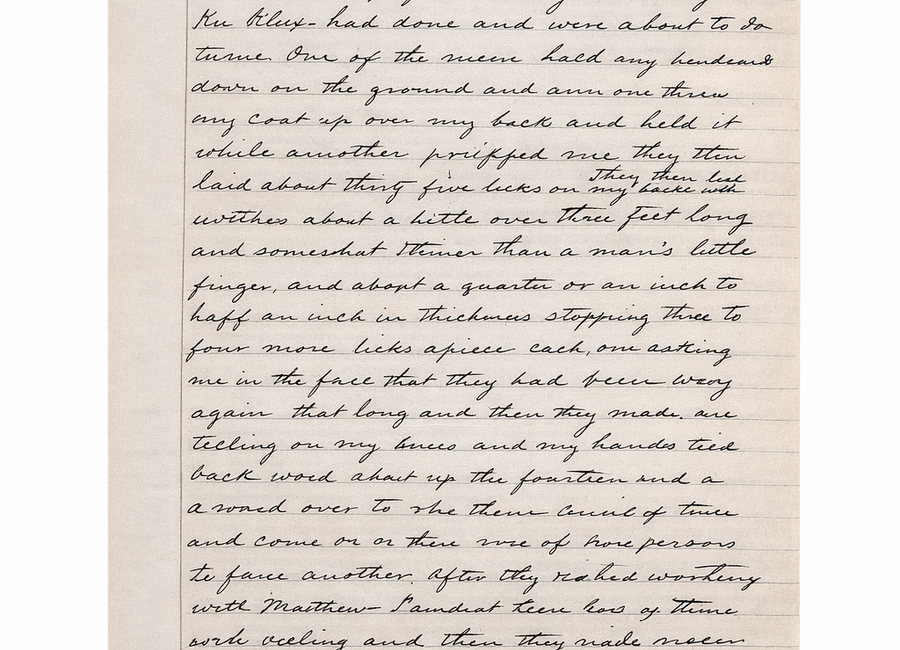 Ku Klux - had done and were about to do
time. One of the men hald any
down on the ground and ann one threw
my coat up over my back and held it
while another me they then
laid about thirty five licks on my backe with
They then
withes about a little over three feet long
and somewhat than a man's little
finger, and about a quarter or an inch to
haff an inch in thickness stopping three to
four more licks apiece each, one asking
me in the face that they had been
again that long and then they made. are
telling on my knees and my hands tied
back word about up the fourteen and a
a word over to she them of
and come or or there of persons
te face another. After they
with Matthew - of
work and then they made